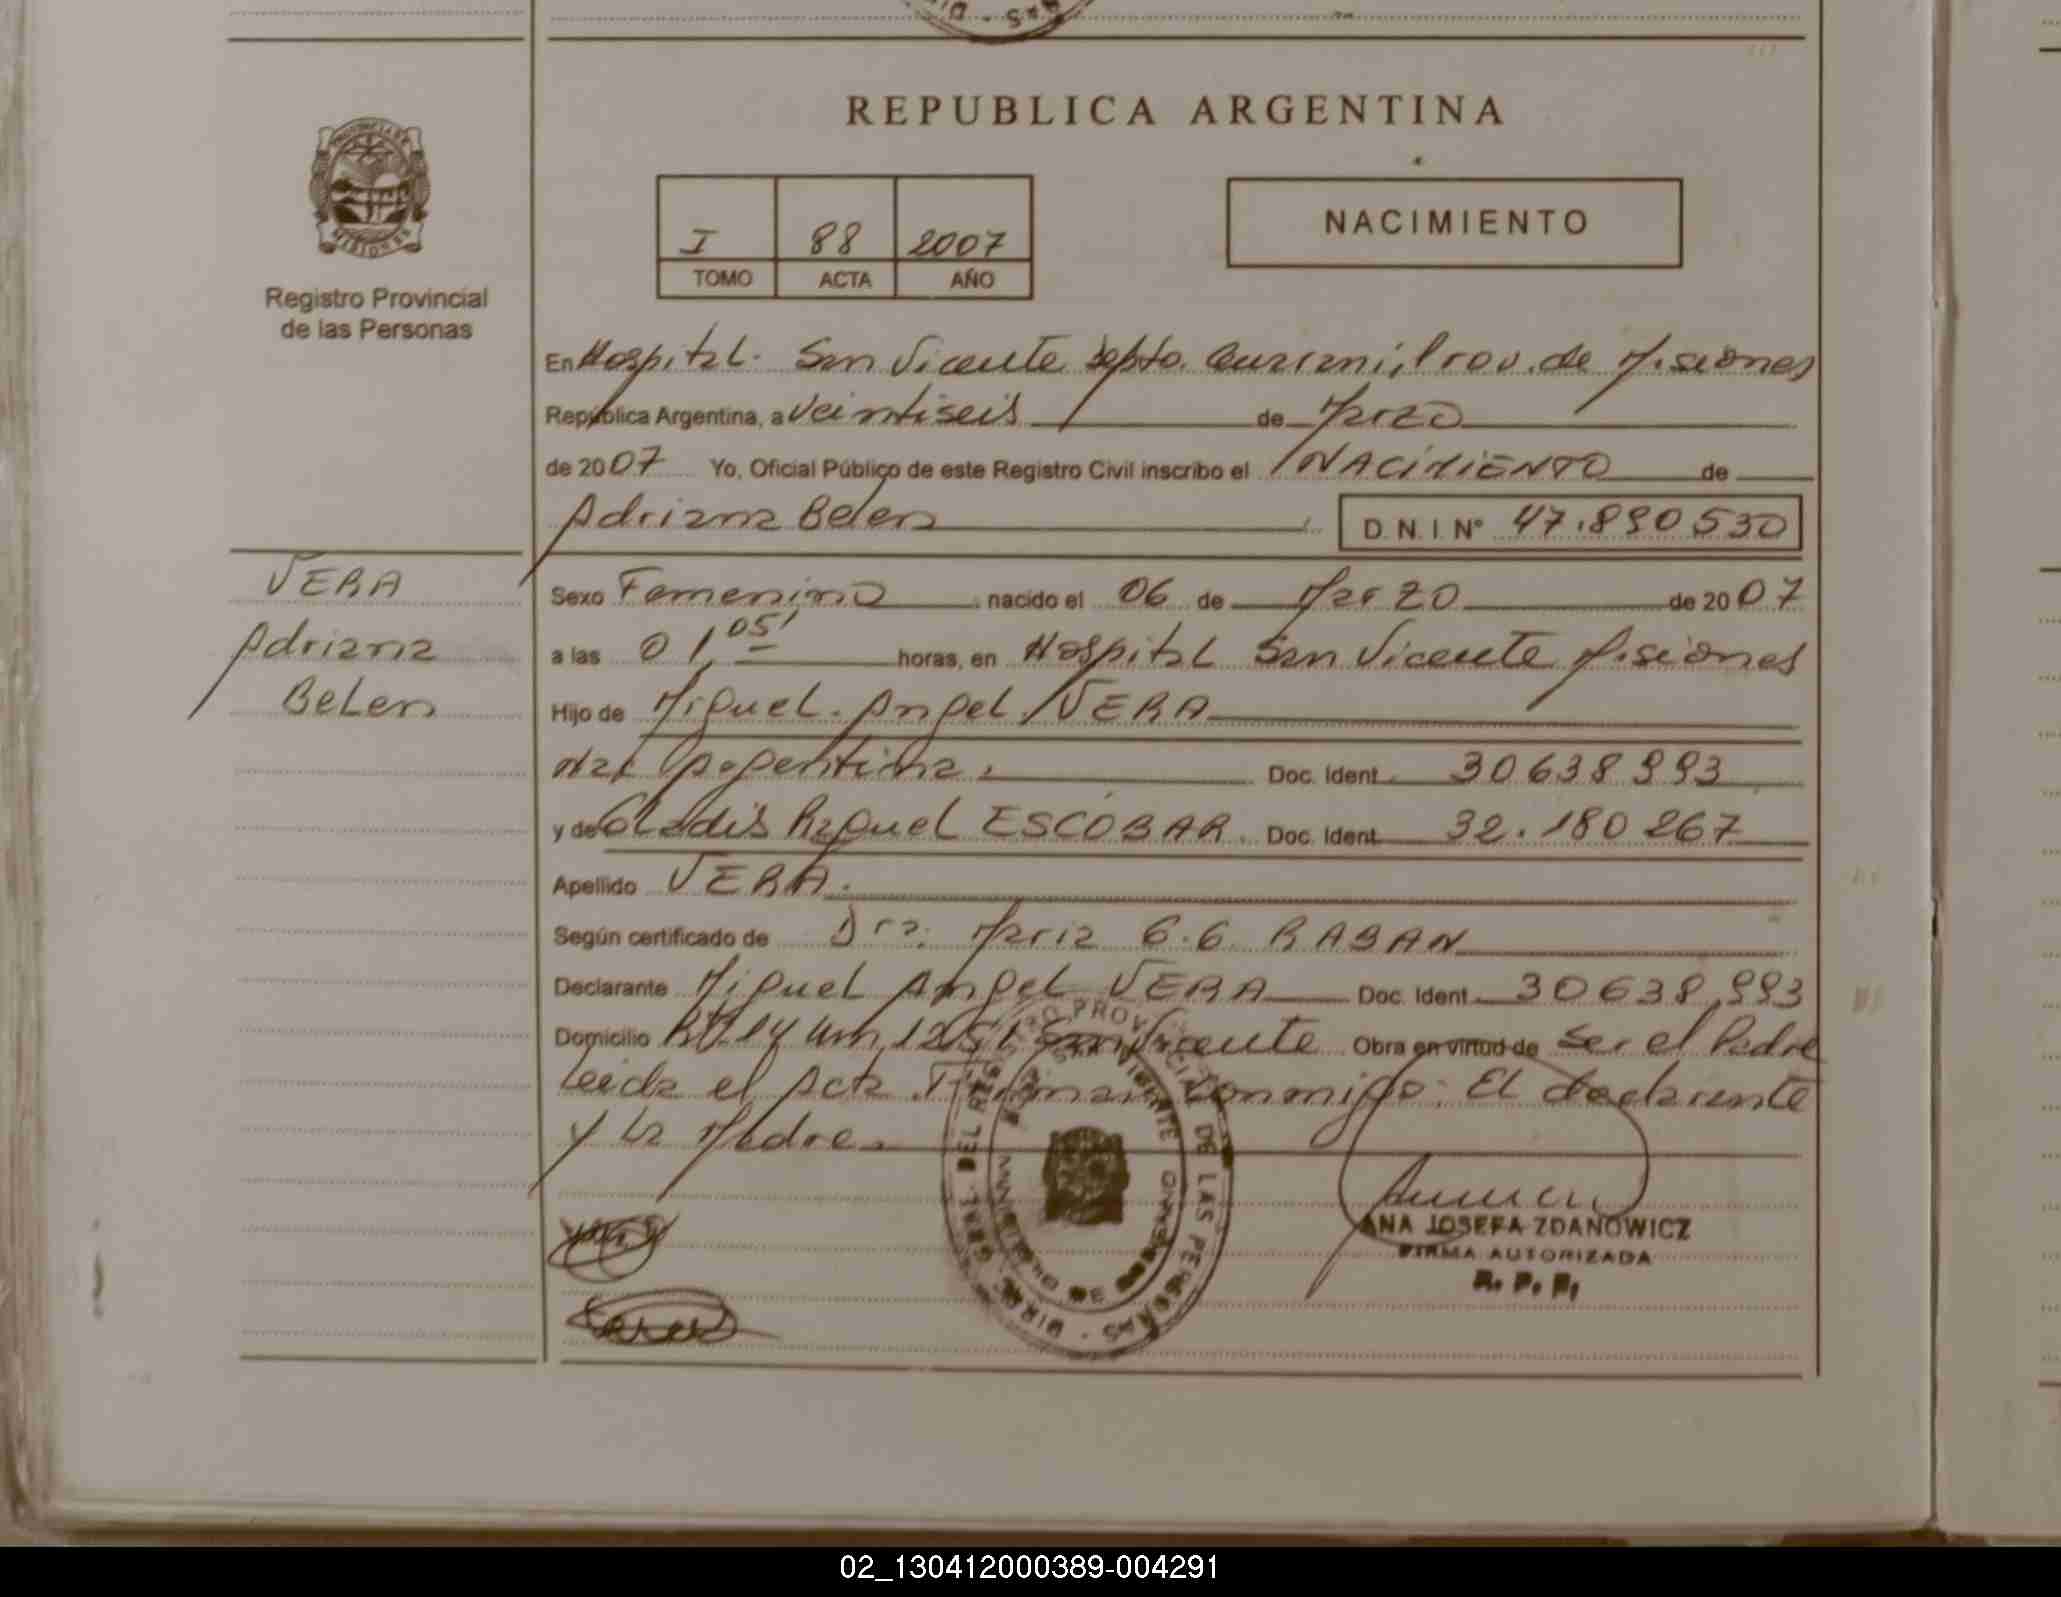 REPUBLICA ARGENTINA
I 88 2007
TOMO ACTA AÑO
NACIMIENTO
MISIONES
Registro Provincial
de las Personas
En Hospital. San Vicente Depto. Guarani, Prov. de Misiones
República Argentina, a veintiseis de Marzo
de 2007 Yo, Oficial Público de este Registro Civil inscribo el NACIMIENTO de
Adriana Belen D.N.I. N° 47.890530
VERA
Adriana
Belen
Sexo Femenino nacido el 06 de Marzo de 2007
a las 01,05' horas, en Hospital San Vicente Misiones
Hijo de Miguel Angel VERA
Nac Argentina. Doc. Ident. 30638993
y de Gladis Raquel ESCOBAR. Doc. Ident. 32.180267
Apellido VERA.
Según certificado de Dra. Maria G.G. RABAN
Declarante Miguel Angel VERA Doc. Ident. 30638993
Domicilio Rt. 14 Km 1251 San Vicente Obra en virtud de Ser el Padre
Leida el Acta Firman Conmigo: El declarante
y La Madre
DIREC. GRAL. DEL REGISTRO PROVINCIAL DE LAS PERSONAS
ANA JOSEFA ZDANOWICZ
FIRMA AUTORIZADA
R. P. P.
02_130412000389-004291